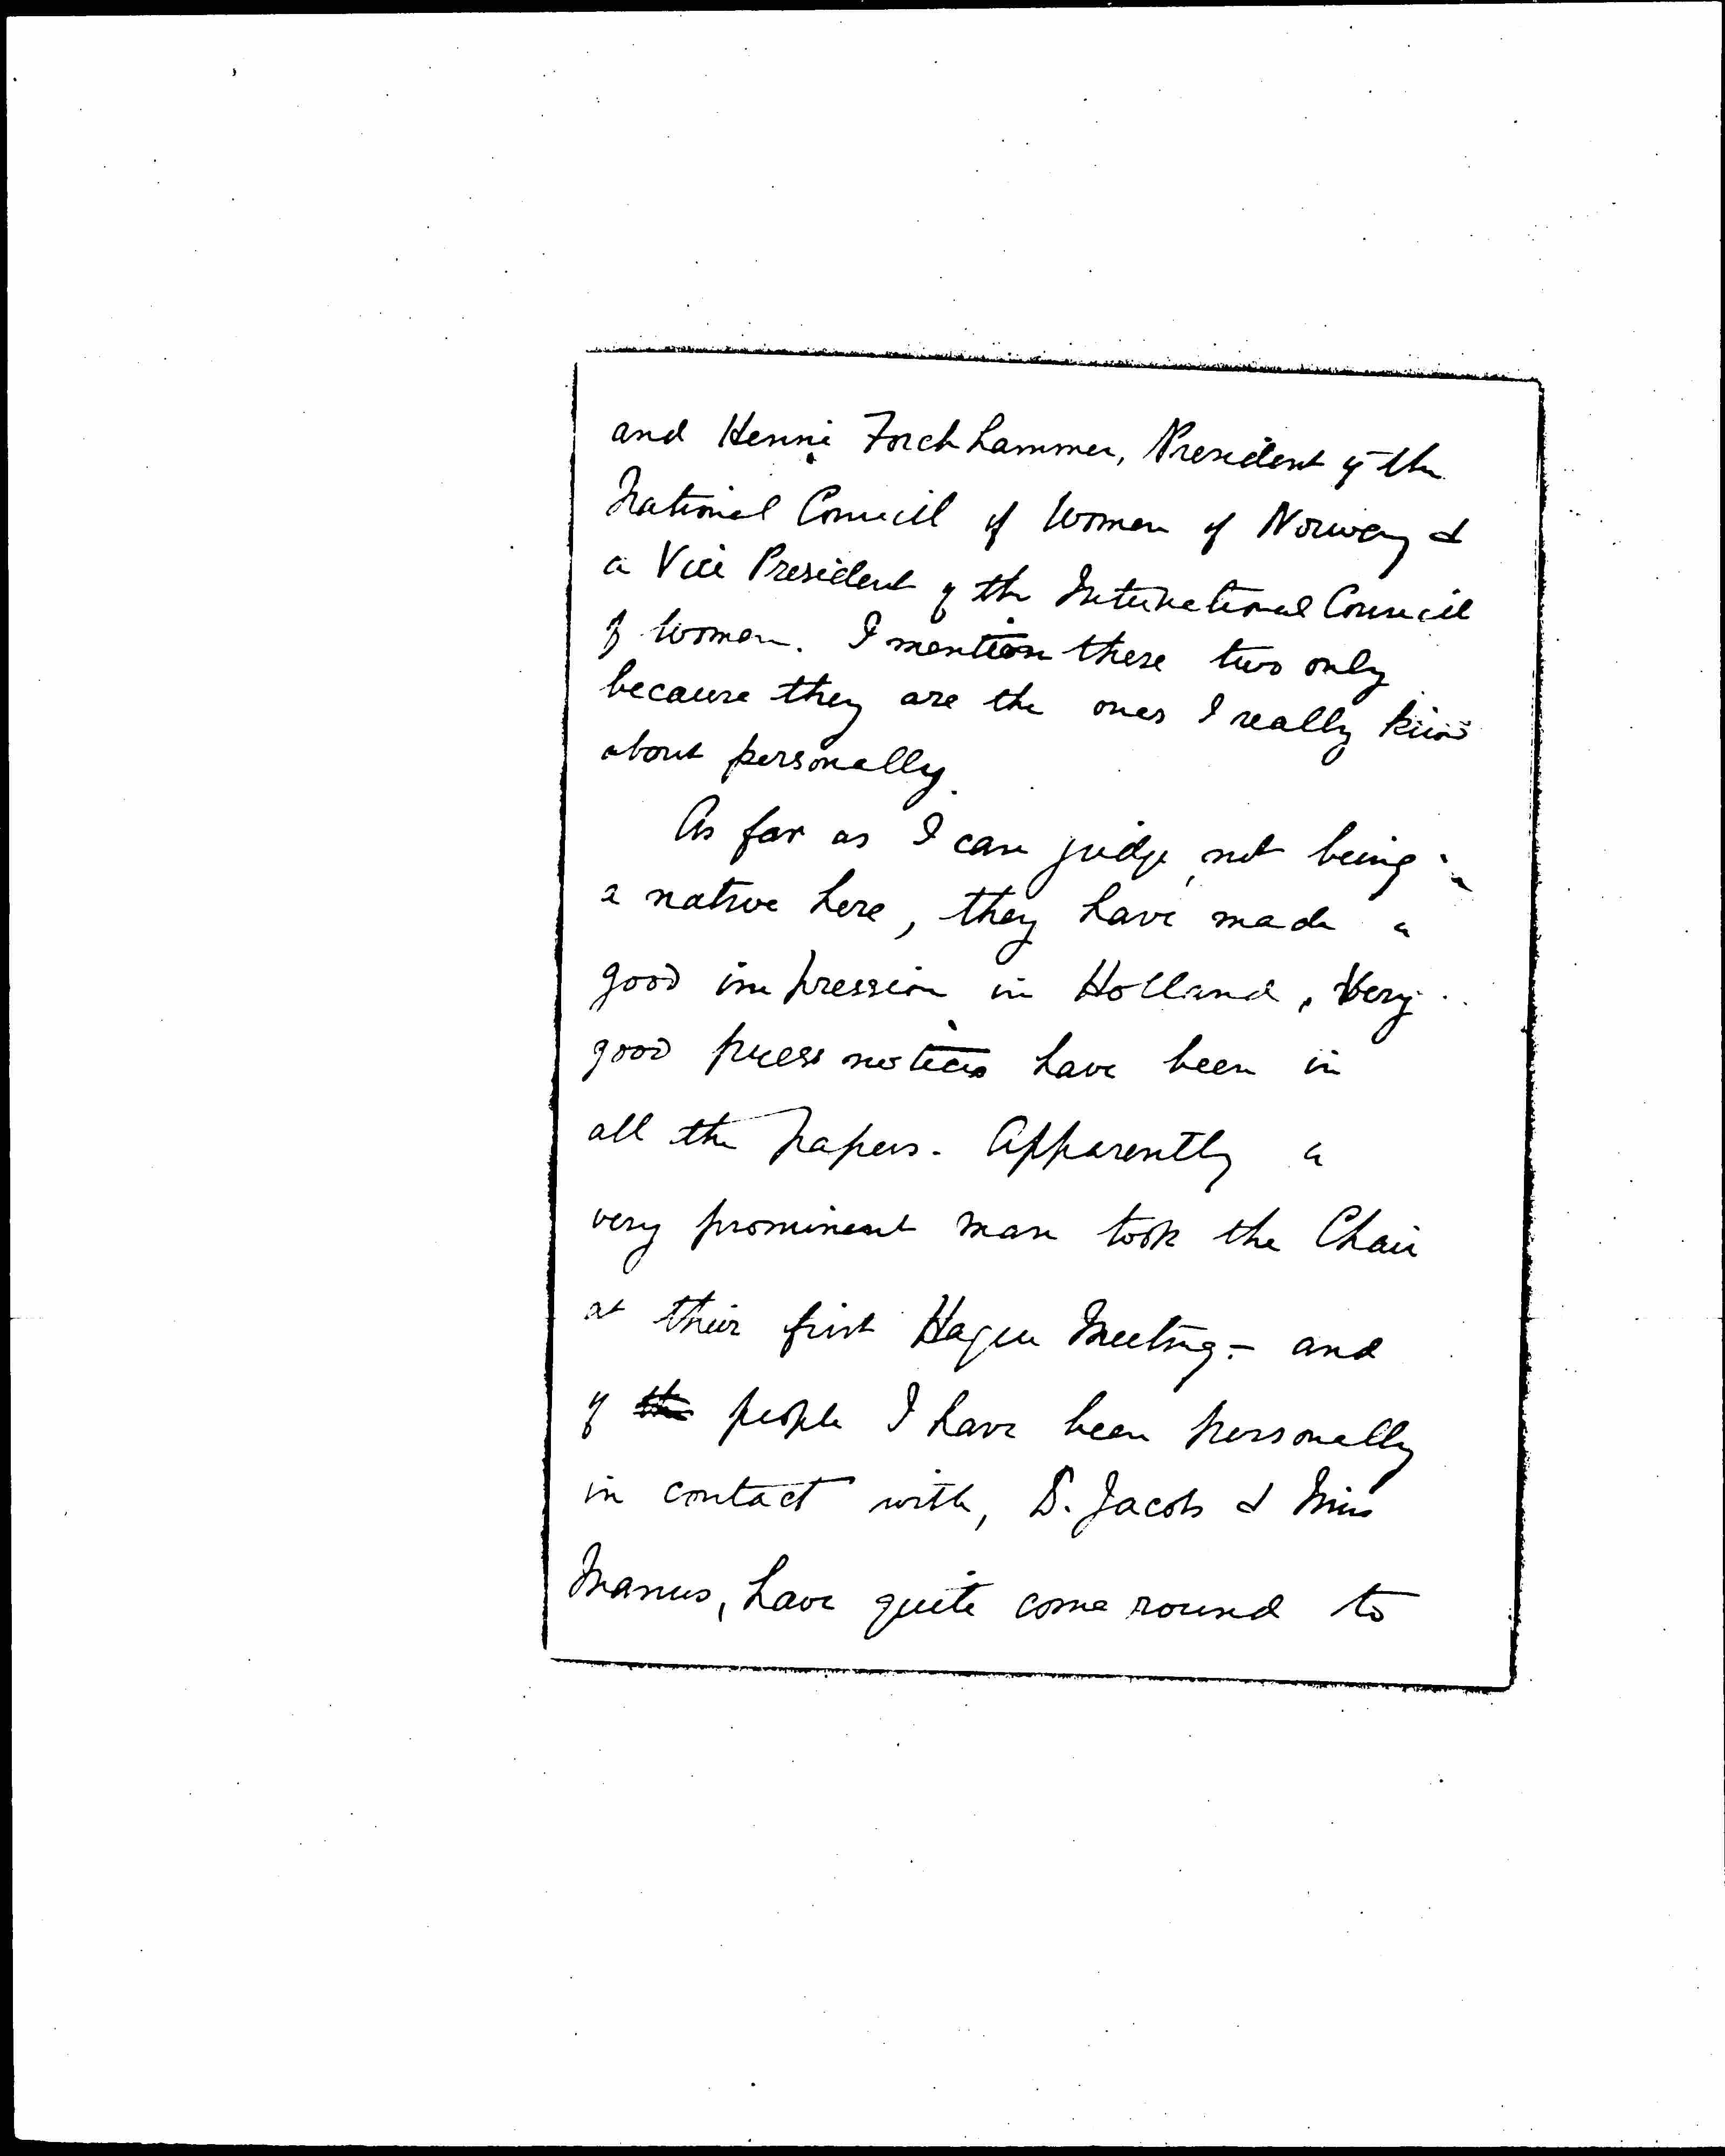 and Henni Forchhammer, President of the
National Council of Women of Norway &
a Vice President of the International Council
of Women. I mention these two only
because they are the ones I really know
about personally.
As far as I can judge, not being
a native here, they have made a
good impression in Holland. Very
good press notices have been in
all the papers. Apparently a
very prominent man took the Chair
at their first Hague Meeting - and
of the people I have been personally
in contact with, D. Jacobs & Miss
Manus, have quite come round to